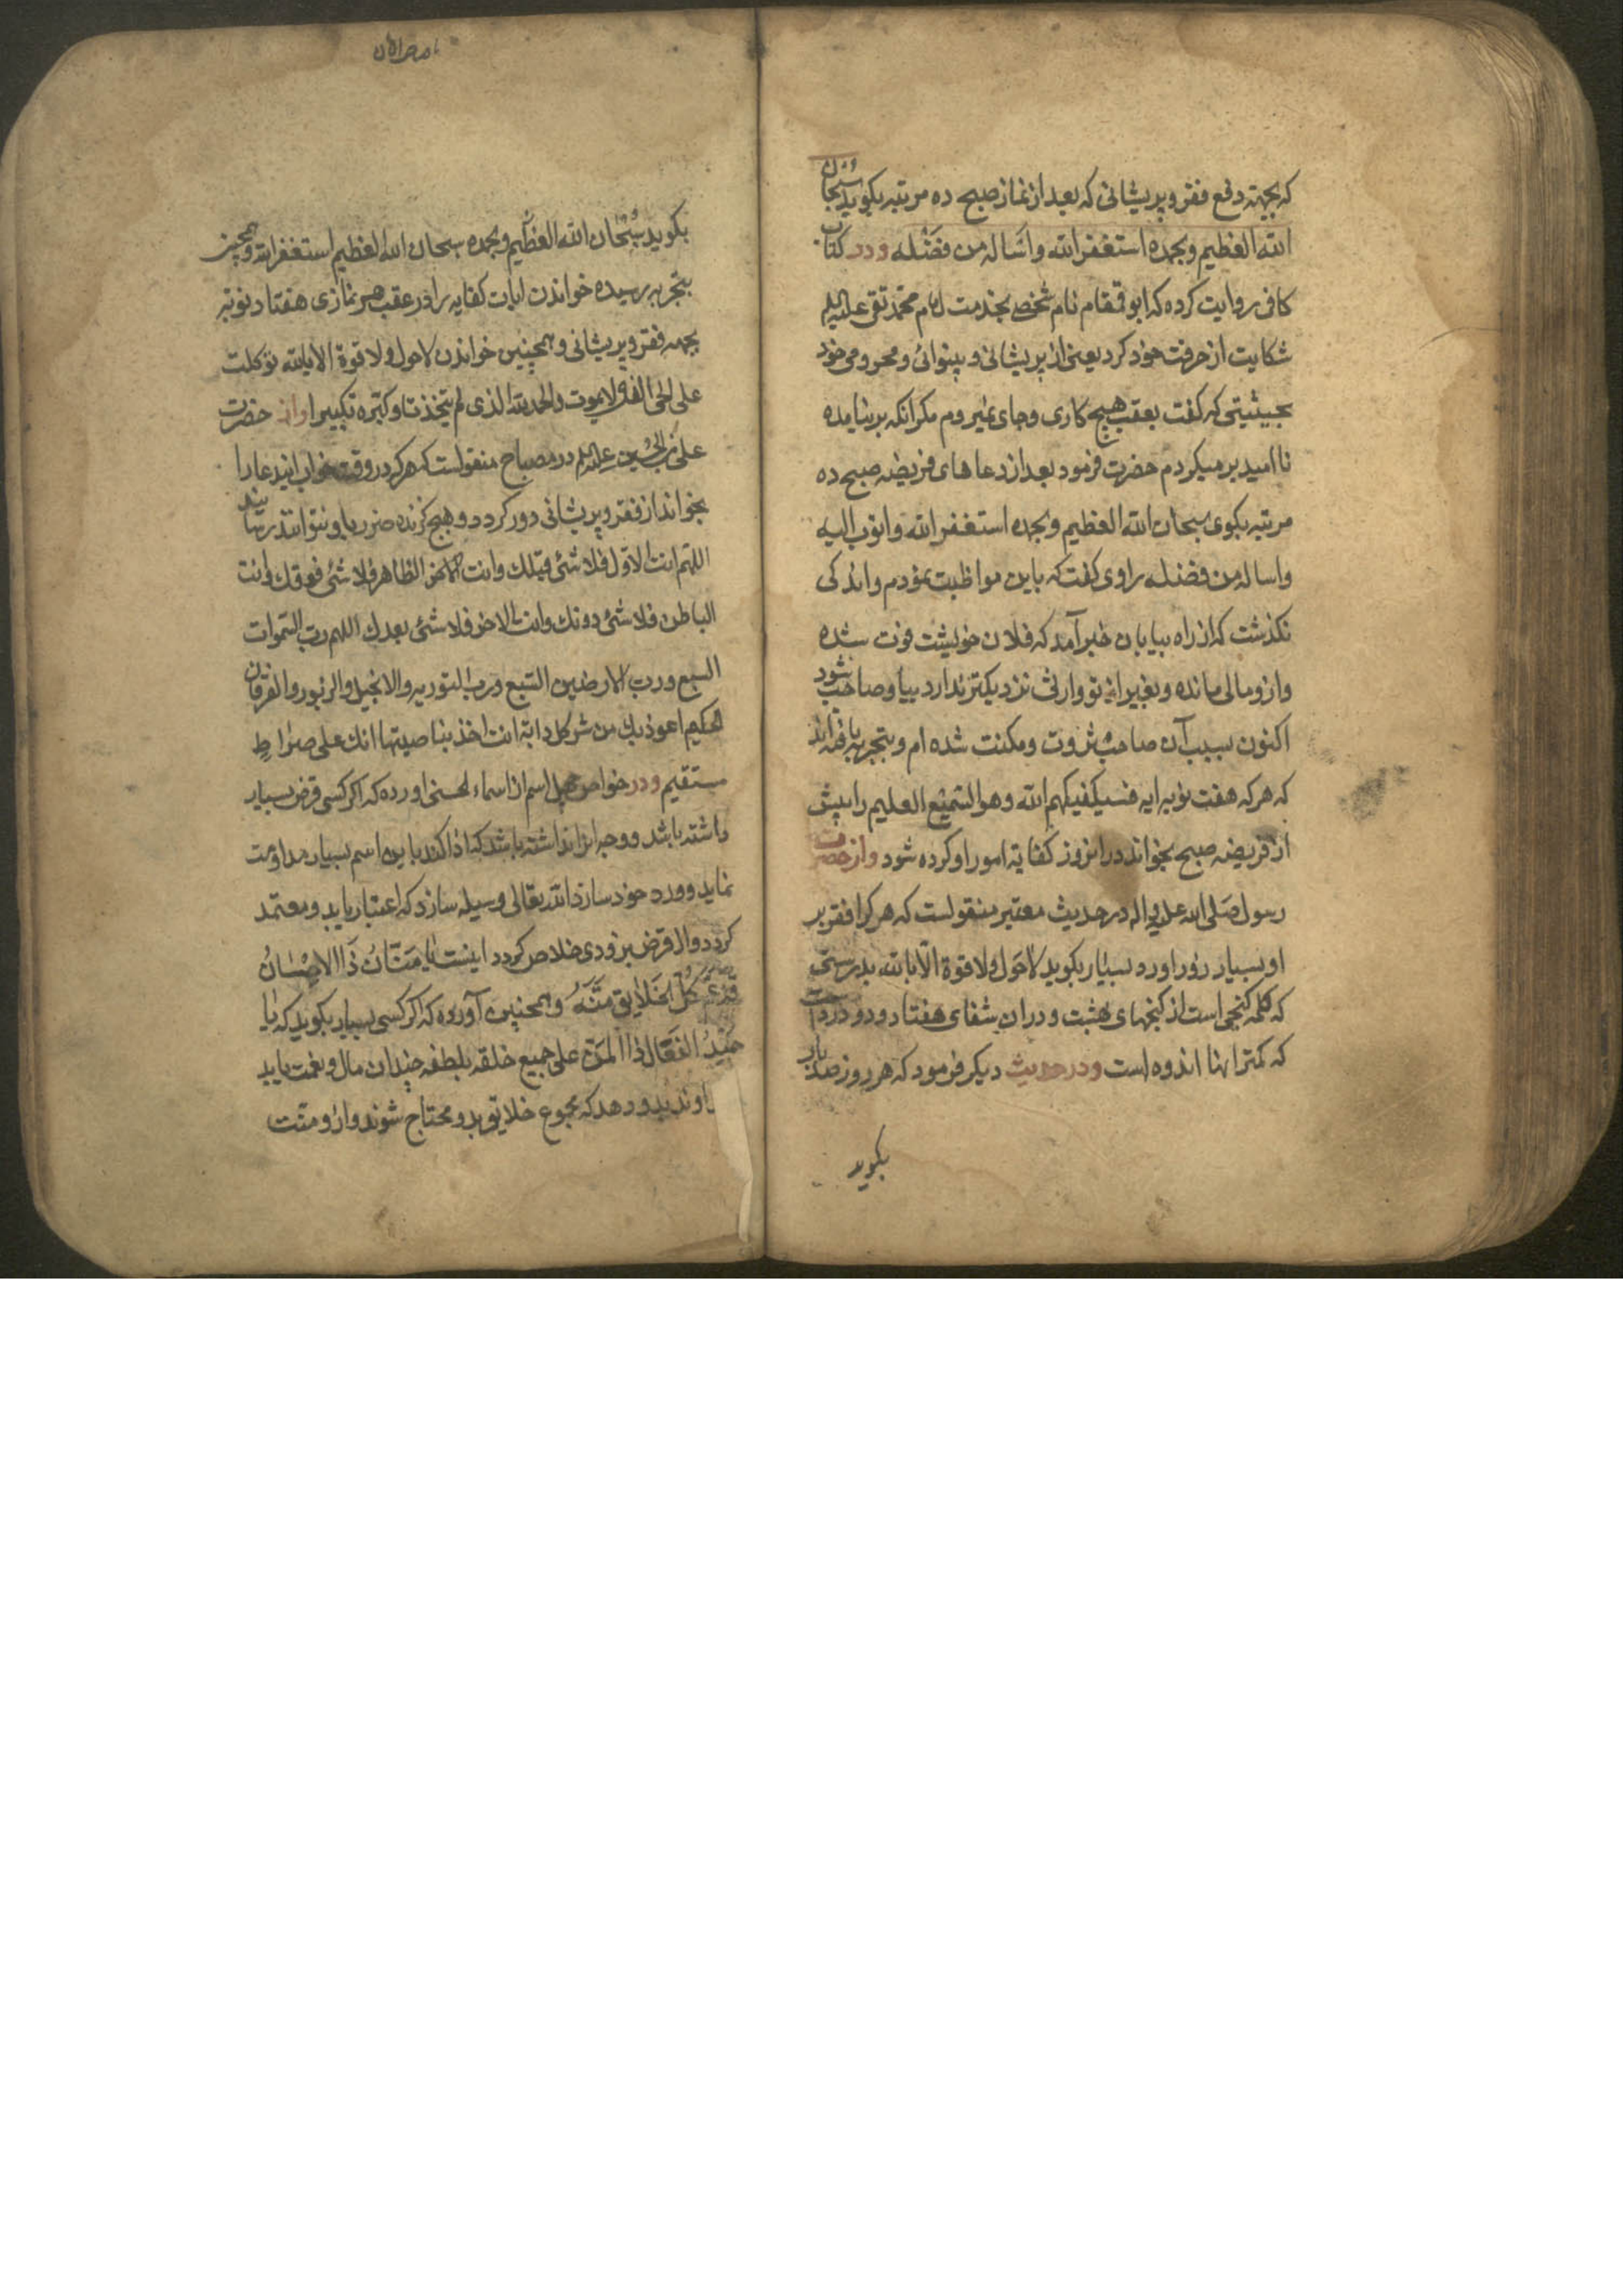 که بجهته دفع فقر و پریشانی که بعد از نماز صبح ده مرتبه بکوید سُبحان
الله العظیم و بحمده استغفر الله و اسَاله من فضَْله و در کتاب
کافی روایت کرده که ابو قمقام نام شخصی بخدمت امام محمّد تقی علیه‌السلم
شکایت از حرفت خود کرد یعنی از پریشانی و بینوائی و محرومی خود
بحیثیتی که کفت بعقب هیچ کاری و جای نمیروم مکر انکه برنیامده
ناامید برمیکردم حضرت فرمود بعد از دعاهای فریضه صبح ده
مرتبه بکوی سبحان الله العظیم و بحمده استغفر الله و اتوب الیه
و اساله من فضله راوی کفت که باین مواظبت نمودم و اندکی
نکذشت که از راه بیابان خبر آمد که فلان خویشت فوت شده
و ازو مالی مانده و بغیر از تو وارثی نزدیکتر ندارد بیا و صاحب شود
اکنون بسبب آن صاحب ثروت و مکنت شده ام و بتجربه یافته اند
که هر که هفت نوبه ایه فسیکفیکهم الله و هو السّمیع العلیم را پیش
از فریضه صبح بخواند در انروز کفایة امور او کرده شود و از حضرت
رسول صَلی الله علیه و اله در حدیث معتبر منقولست که هر کرا فقر بر
او بسیار زور اورد بسیار بکوید لاحَول ولا قوة الّا بالله بدرستی
که کلمه کنجی است از کنجهای بهشت و دران شفای هفتاد و دو درد است
که کمتر اینها اندوه است و در حدیث دیکر فرمود که هر روز صد بار
بکوید
بکوید سُبْحان الله العظیم و بحمده سبحان الله العظیم استغفر الله و همچنین
بتجربه رسیده خواندن ایات کفایه را در عقب هر نمازی هفتاد نوبته
بجهه فقر و پریشانی و همچنین خواندن لاحول ولا قوة الا بالله توکلت
علی الحی الذی لایموت و الحمد لله الذی لم یتخذ و کبّره تکبیرا و از حضرت
علی بن الحسین علیه‌السلم در مصباح منقولست که هر که در وقت خواب ایندعا را
بخواند از فقر و پریشانی دور کردد و هیچ کزنده ضرر باو نتوانند رسانند
اللهم انت الاوّل فلا شئ قبلک و انت الظاهر فلا شئ فوقک و انت
الباطن فلا شئ دونک و انت الاخر فلا شئ بعدک اللهم رب السّموات
السبع و رب الارضین السّبع و رب التوریه و الانجیل و الزبور و الفرقان
الحکیم اعوذ بک من شر کل دابة انت اخذ بناصیتها انک علی صِراطٍ
مستقیم و در خواص چهل اسم از اسماء الحسنی اورده که اکر کسی قرض بسیار
داشته باشد و وجه انرا نداشته باشد که ادا کند باین اسم بسیار مداومت
نماید و ورد خود سازد الله تعالی وسیله سازد که اعتبار یابد و معتمد
کردد و از قرض بزودی خلاص کردد اینست یا مَنّانُ ذَا الاحْسانُ
قدعَمّ کُلّ الخَلایق مَنُّهُ و همچنین آورده که اکر کسی بسیار بکوید که یا
حمیدُ الفَعّال ذا المَنّ علی جمیع خلقه بلطفه چندان مال و نعمت یابد
که مجموع خلایق بدو محتاج شوند و ازو منّت